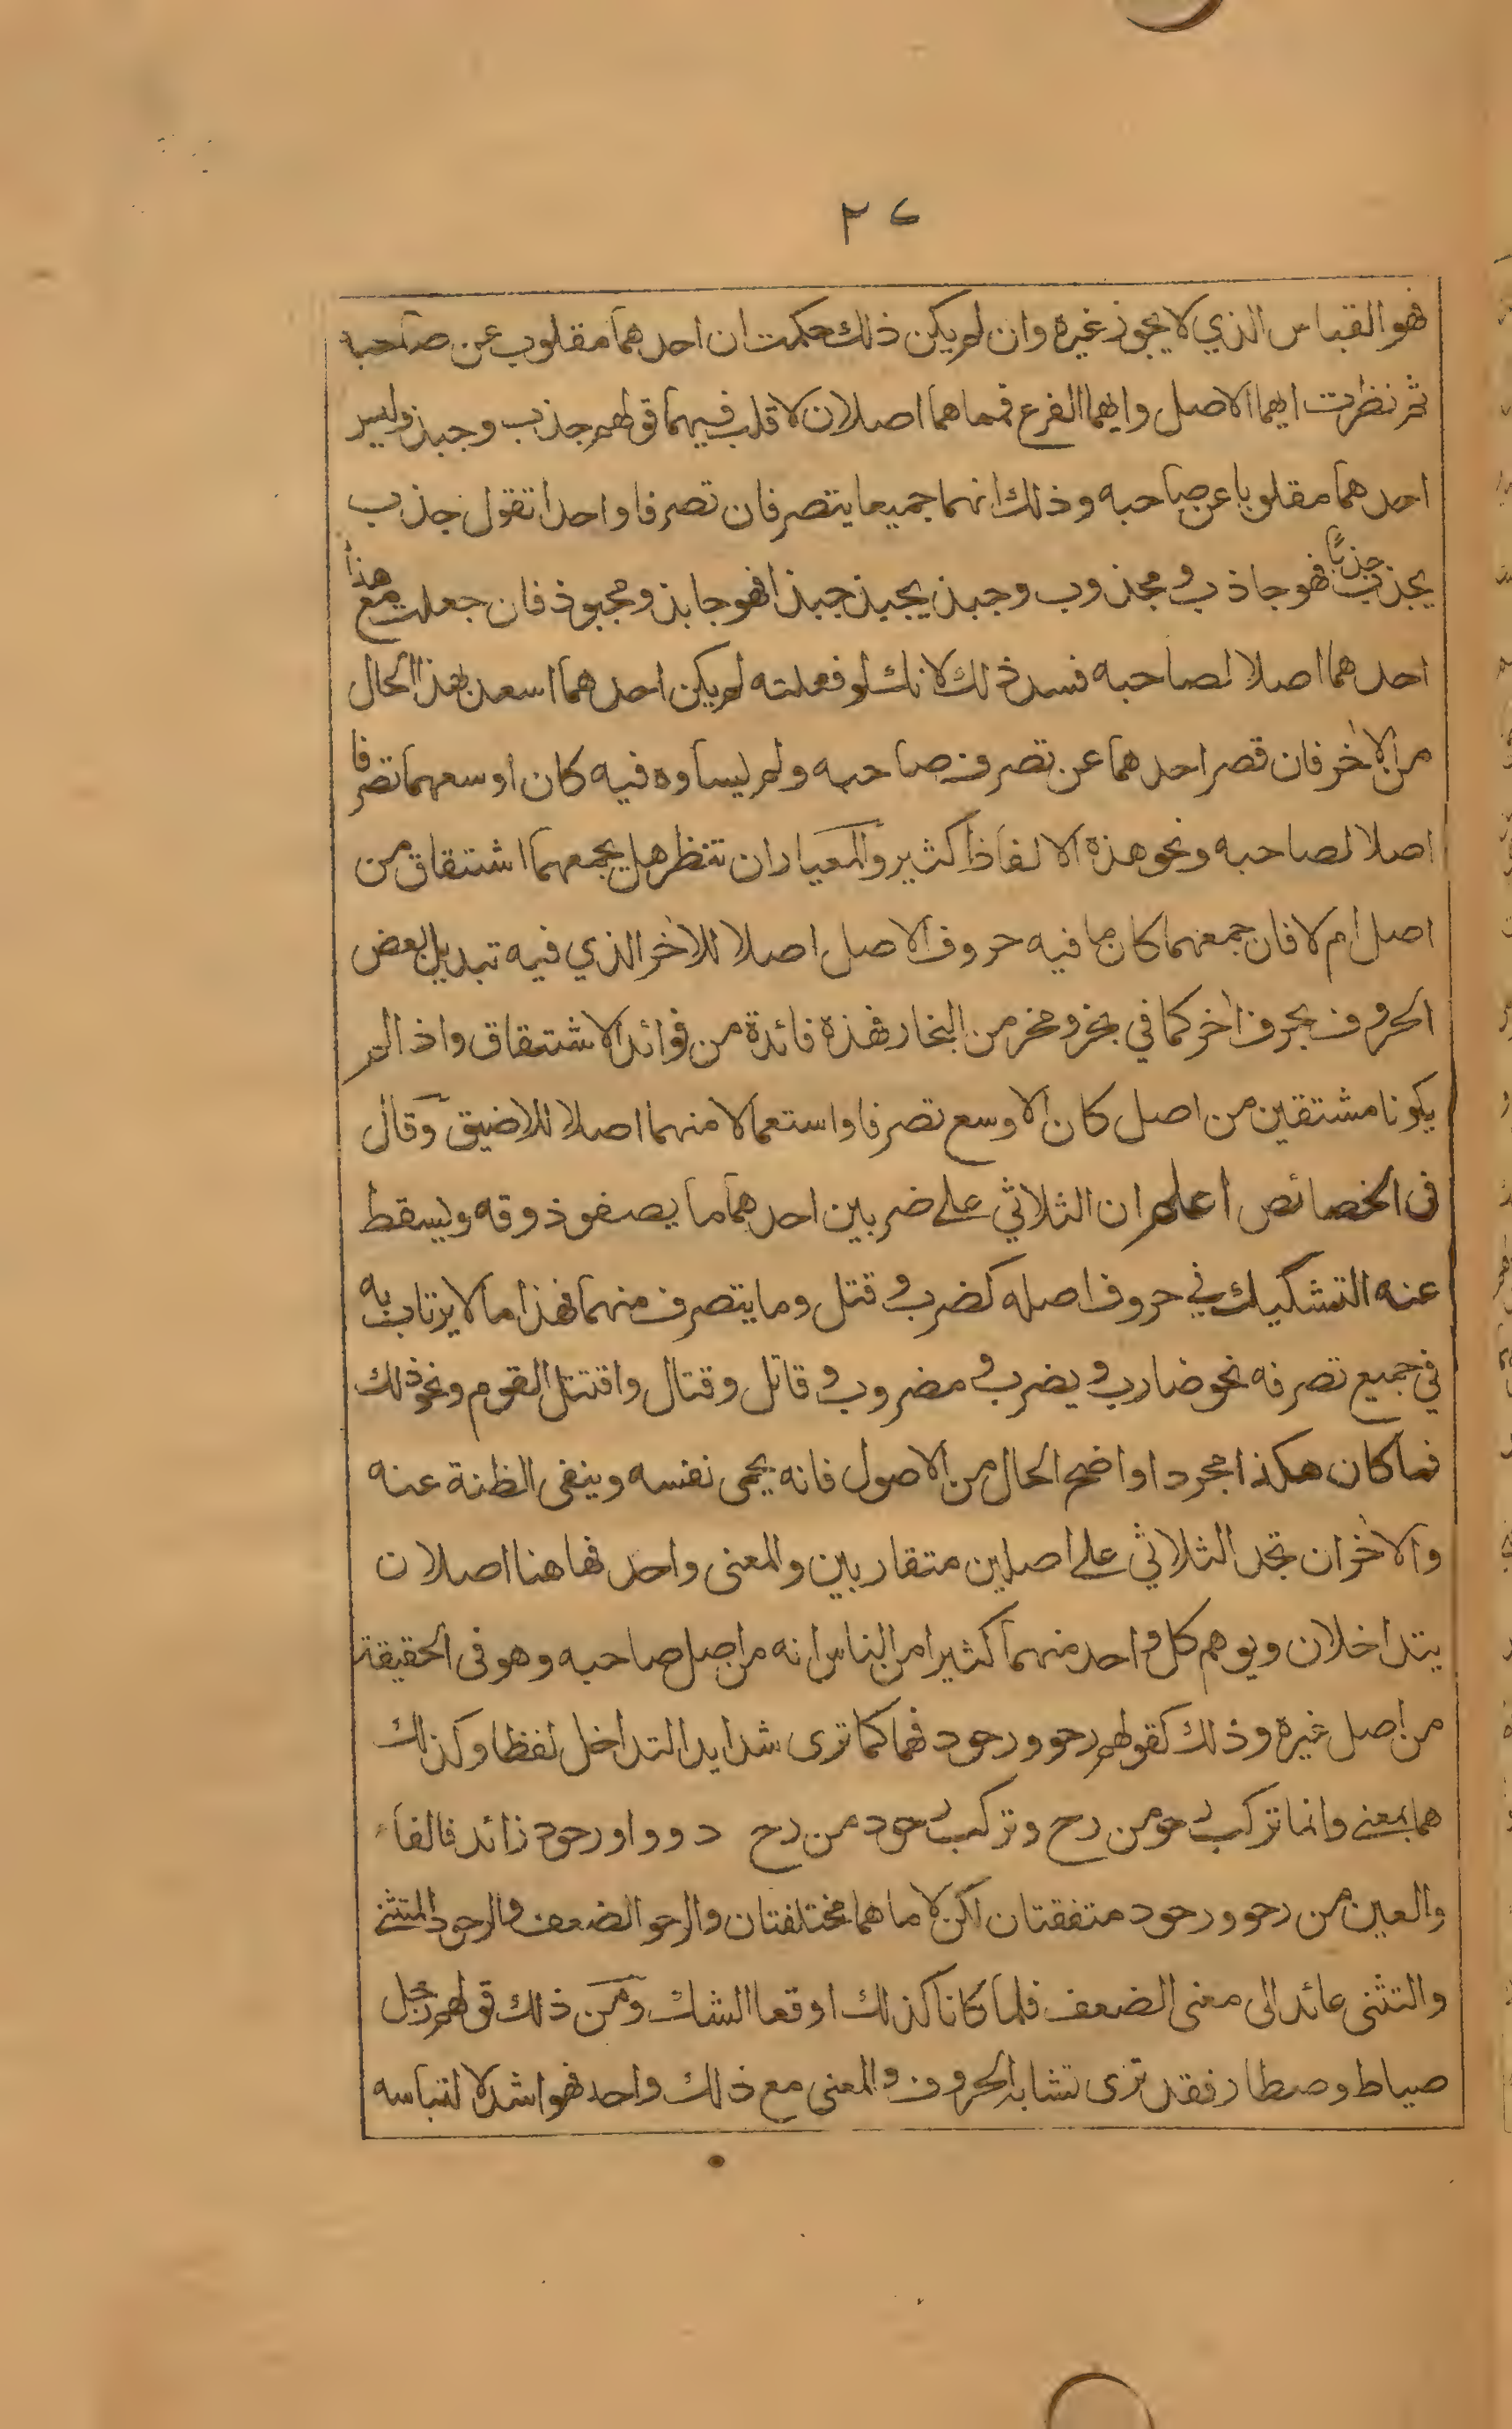 ٢٤
فهو القياس الذي لا يجوز غيره وان لم يكن ذلك حكمت ان احدهما مقلوب عن صاحبه
ثم نظرت ايهما الاصل وايهما الفرع فمما هما اصلان لا قلب فيهما قولهم جذب وجبذ وليس
احدهما مقلوبا عن صاحبه وذلك انهما جميعا يتصرفان تصرفا واحدا تقول جذب
يجذب جذبًا فهو جاذب ومجذوب وجبذ يجبذ جبذا فهو جابذ ومجبوذ فان جعلت مع هذا
احدهما اصلا لصاحبه فسد ذلك لانك لو فعلته لم يكن احدهما اسعد بهذا الحال
من الاخر فان قصر احدهما عن تصرف صاحبه ولم يساوه فيه كان اوسعهما تصرفا
اصلا لصاحبه ونحو هذه الالفاظ كثير والمعيار ان تنظر هل يجمعهما اشتقاق من
اصل ام لا فان جمعهما كان ما فيه حروف الاصل اصلا للاخر الذي فيه تبديل بعض
الحروف بحرف اخر كما في بخر ومخر من البخار فهذه فائدة من فوائد الاشتقاق واذا لم
يكونا مشتقين من اصل كان الاوسع تصرفا واستعمالا منهما اصلا للاضيق وقال
فى الخصائص اعلم ان الثلاثي على ضربين احدهما ما يصفو ذوقه ويسقط
عنه التشكيك في حروف اصله كضرب وقتل وما يتصرف منهما فهذا ما لا يرتاب به
في جميع تصرفه نحو ضارب ويضرب ومضروب وقاتل وقتال واقتتل القوم ونحو ذلك
فما كان هكذا مجردا واضح الحال من الاصول فانه يحمى نفسه وينفى الظنة عنه
والاخر ان تجد الثلاثي على اصلين متقاربين والمعنى واحد فهاهنا اصلان
يتداخلان ويوهم كل واحد منهما كثيرا من الناس انه من اصل صاحبه وهو فى الحقيقة
من اصل غيره وذلك كقولهم رحو ورحود فهما كما ترى شدايد التداخل لفظا وكذلك
هما بمعنى وانما تركيب رحو من رح و تركيب رحود من رح د وواو رحود زائد فالفاء
والعين من رحو ورحود متفقتان لكن لاماهما مختلفتان والرحو الضعف والرحود المتثنى
والتثنى عائد الى معنى الضعف فلما كانا كذلك اوقعا الشك ومن ذلك قولهم رجل
صياط وصطار فقد ترى تشابه الحروف والمعنى مع ذلك واحد فهو اشد لالتباسه